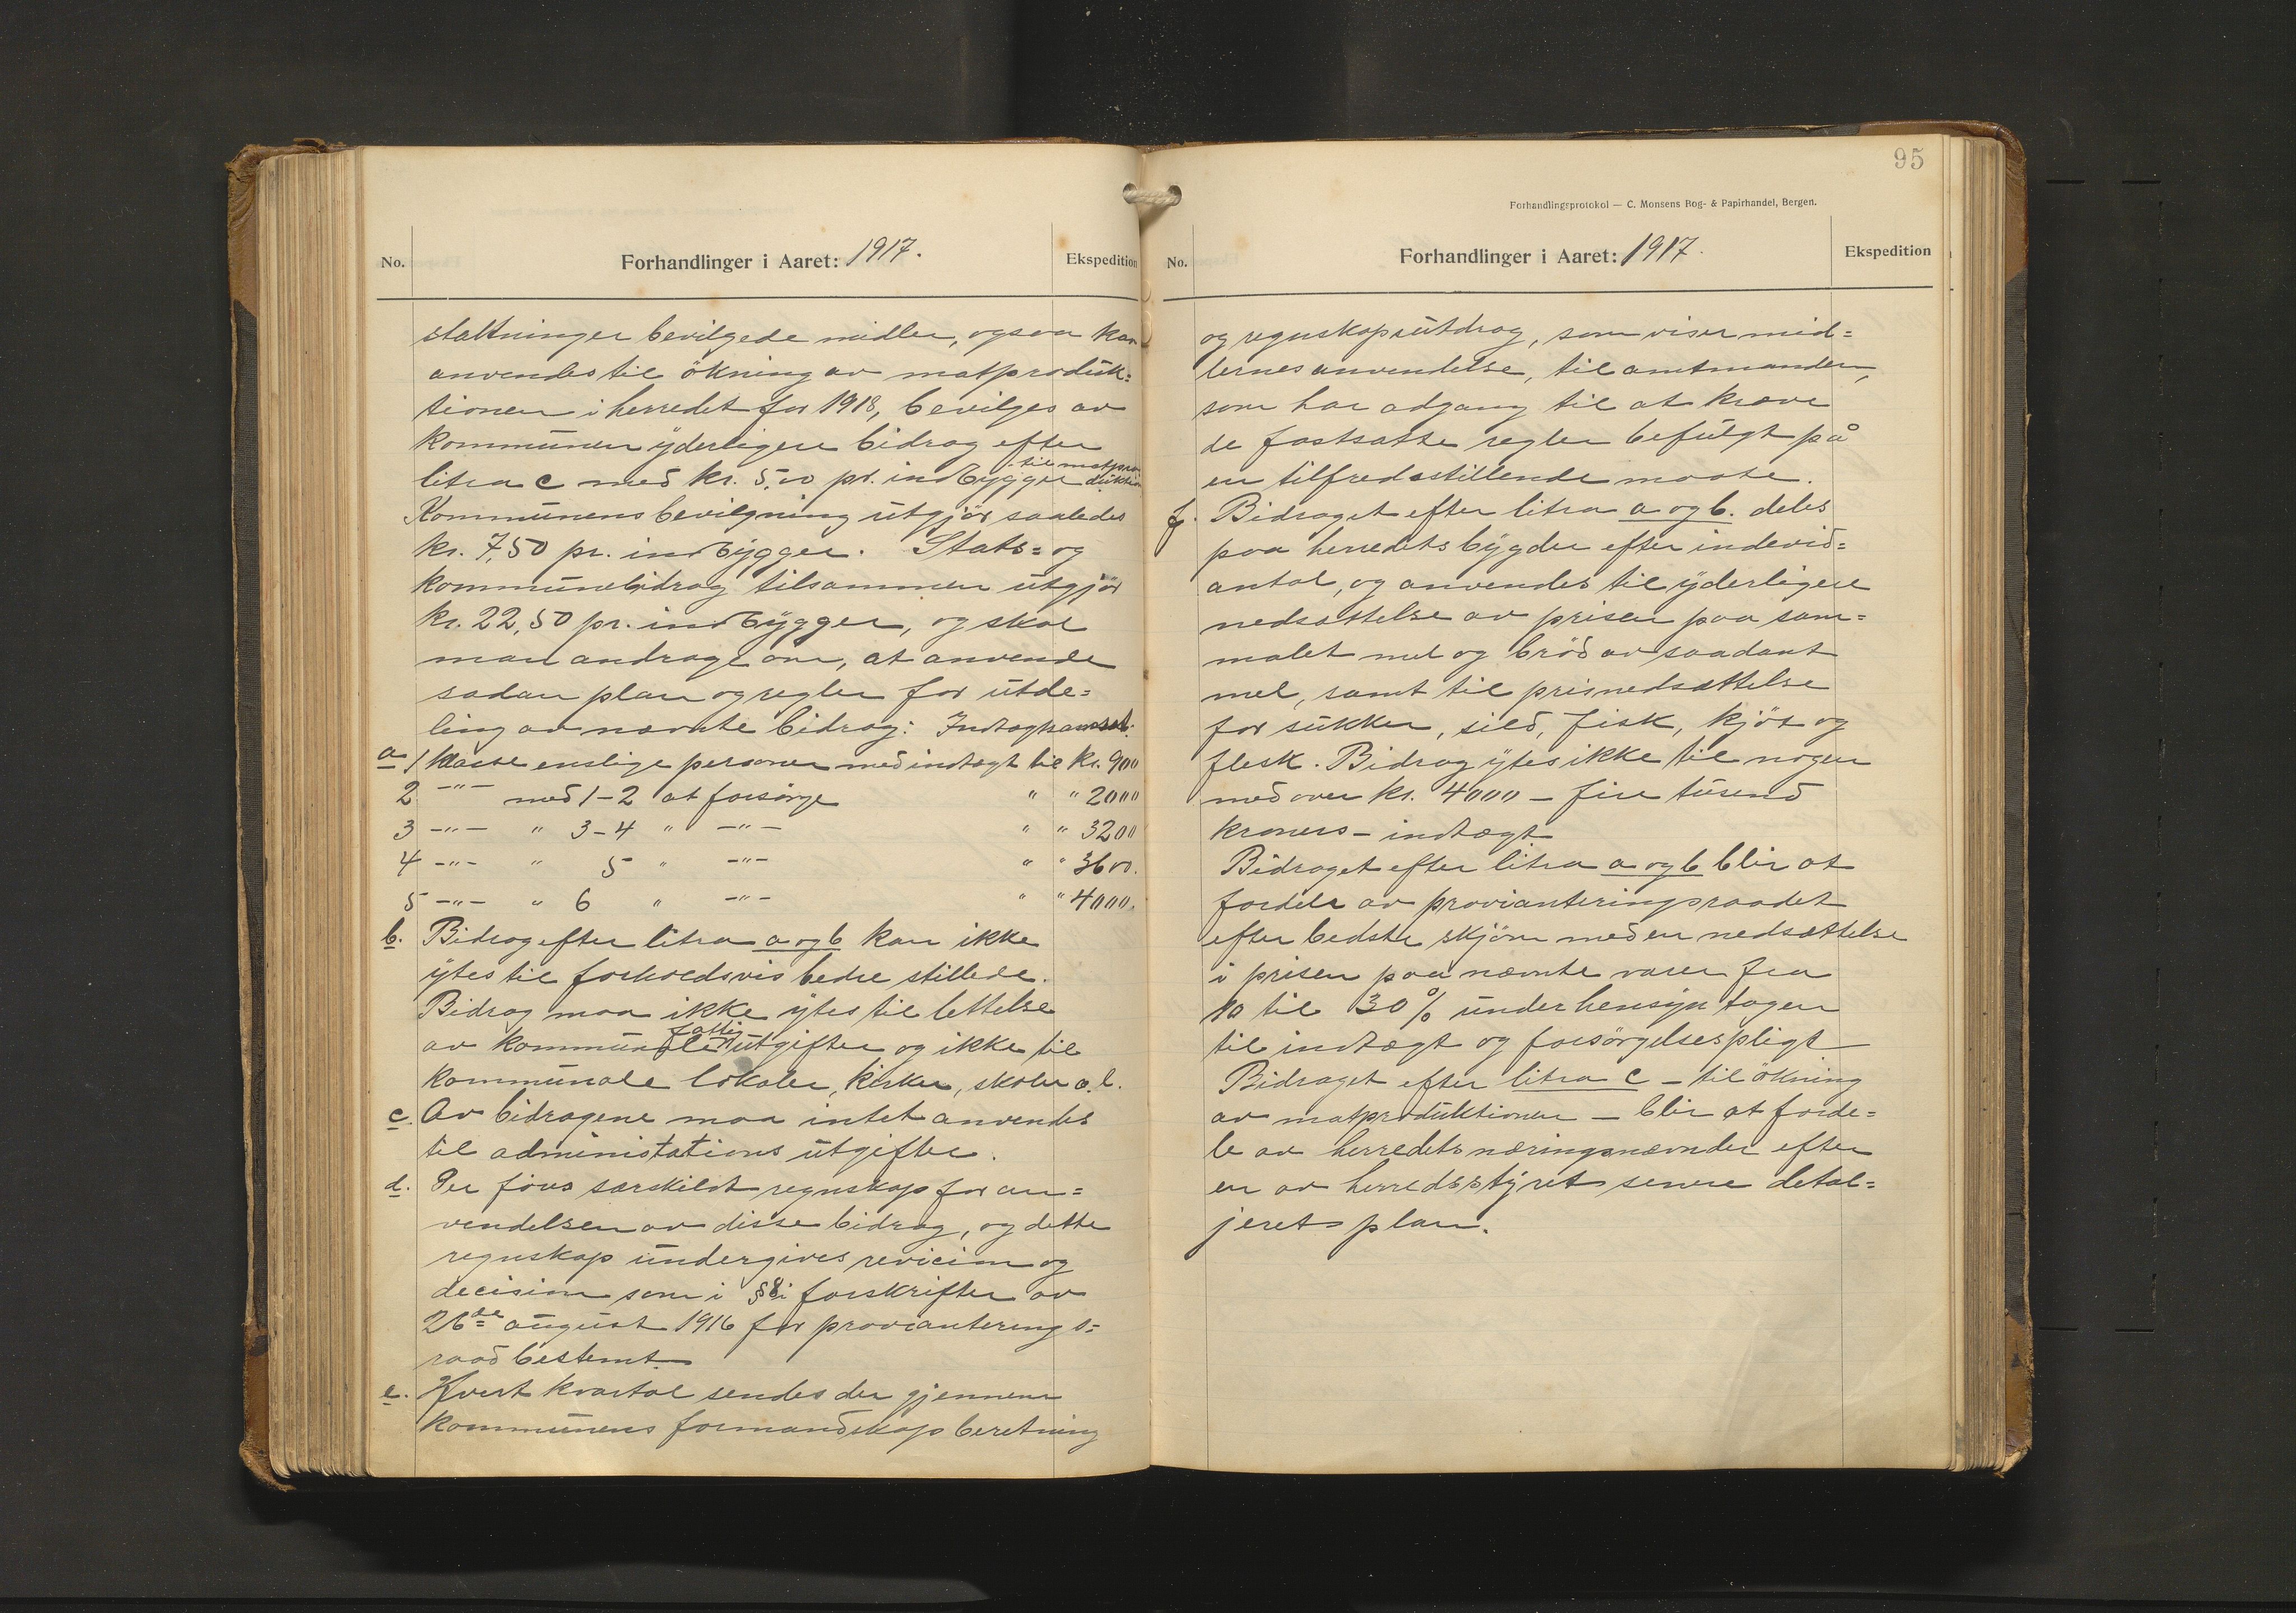 No.
Forhandlinger i Aaret: 1917.
Ekspedition
staltninger bevilgede midler, ogsaa kan
anvendes til ökning av matproduk=
tionen i herredet for 1918, bevilges av
kommunen yderligere bidrag efter
litra c med kr. 5,00 pr. indbygger til matpro
duktion
Kommunens bevilgning utgjör saaledes
kr. 7,50 pr. indbygger. Stats= og
kommunebidrag tilsammen utgjör
kr. 22,50 pr. indbygger, og skal
man andrage om, at anvende
sadan plan og regler for utde=
ling av nævnte bidrag:
a 1 klasse enslige personer med indtægt til kr. 900
2 -"- med 1-2 at forsörge " " 2000
3 -"- " 3-4 " -"- " " 3200
4 -"- " 5 " -"- " " 3600.
5 -"- " 6 " -"- " " 4000.
b. Bidrag efter litra a og b kan ikke
ytes til forholdsvis bedre stillede.
Bidrag maa ikke ytes til lettelse
av kommunale fattigutgifter og ikke til
kommunale lokaler, kirker, skoler o. l.
c. Av bidragene maa intet anvendes
til administations utgifter.
d. Der föres særskildt regnskap for an=
vendelsen av disse bidrag, og dette
regnskap undergives revicion og
decision som i § 8 i forskrifter av
26de august 1916 for provianterings=
raad bestemt.
e. Hvert kvartal sendes der gjennem
kommunens formandskap beretning
95
Forhandlingsprotokol — C. Monsens Bog- & Papirhandel, Bergen.
No.
Forhandlinger i Aaret: 1917.
Ekspedition
og regnskapsutdrag, som viser mid=
lernes anvendelse, til amtmanden,
som har adgang til at kræve
de fastsatte regler befulgt på
en tilfredsstillende maate.
f. Bidraget efter litra a og b. deles
paa herredets bygder efter indevid=
antal, og anvendes til yderligere
nedsættelse av prisen paa sam=
malet mel og bröd av saadant
mel, samt til prisnedsættelse
for sukker, sild, fisk, kjöt og
flesk. Bidrag ytes ikke til nogen
med over kr. 4000 - fire tusend
kroners - indtægt
Bidraget efter litra a og b blir at
fordele av provianteringsraadet
efter bedste skjön med en nedsættelse
i prisen paa nævnte varer fra
10 til 30% under hensyn tagen
til indtægt og forsörgelsespligt
Bidraget efter litra c - til ökning
av matproduktionen - blir at forde=
le av herredets næringsnævnder efter
en av herredsstyret senere detal=
jeret plan.